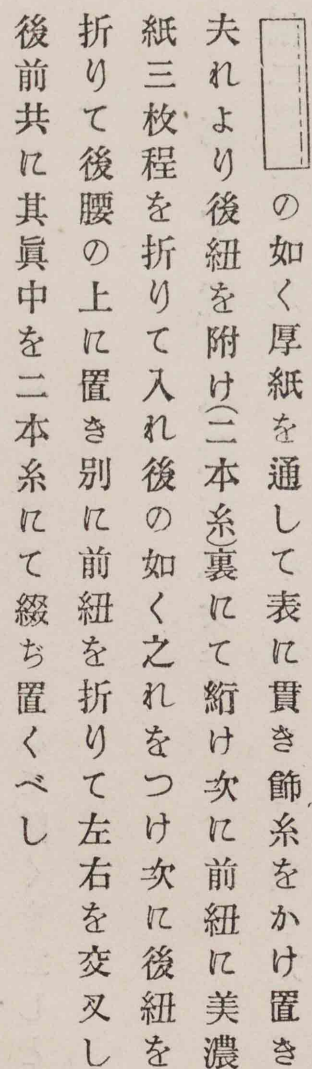 の如く厚紙を通して表に貫き飾糸をかけ置き
夫れより後紐を附け(二本糸)裏にて絎け次に前紐に美濃
紙三枚程を折りて入れ後の如く之れをつけ次に後紐を
折りて後腰の上に置き別に前紐を折りて左右を交叉し
後前共に其眞中を二本糸にて綴ぢ置くべし